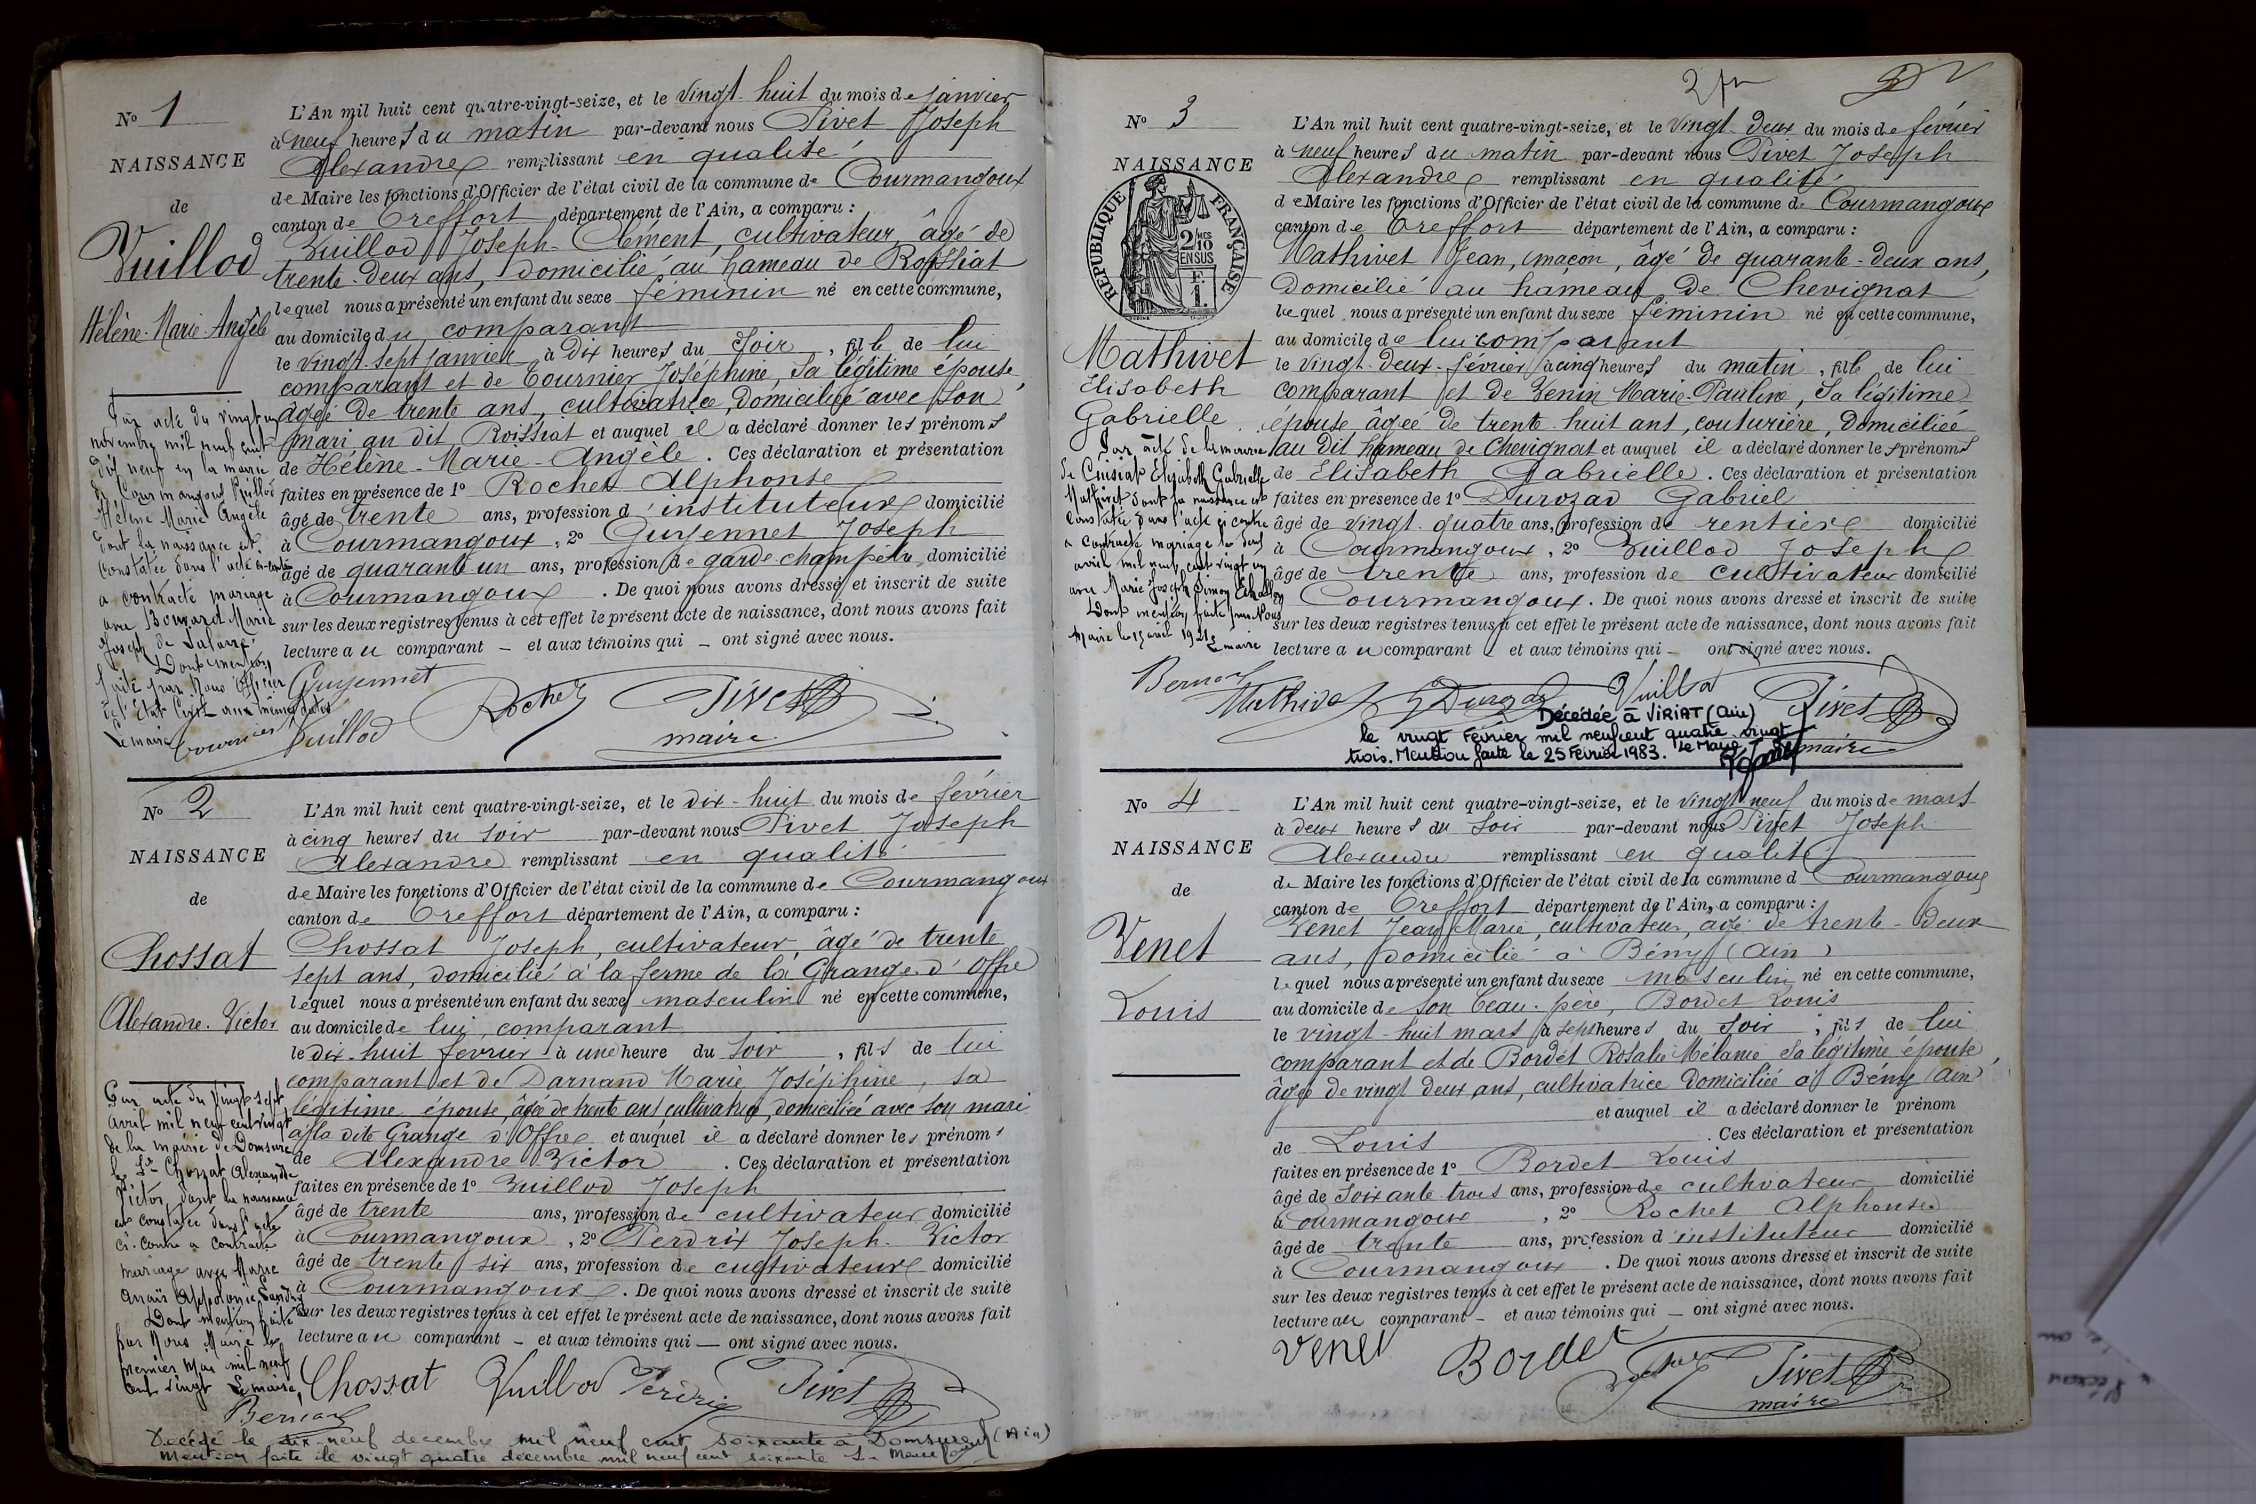 N° 1
NAISSANCE
de
Vuillod
Hélène-Marie-Angèle
L'An mil huit cent quatre-vingt-seize, et le vingt-huit du mois de janvier
à neuf heures du matin par-devant nous Pivet Joseph
Alexandre remplissant en qualité
de Maire les fonctions d'Officier de l'état civil de la commune de Courmangoux
canton de Treffort département de l'Ain, a comparu :
Vuillod Joseph-Clément, cultivateur, âgé de
trente-deux ans, domicilié au hameau de Roissiat
lequel nous a présenté un enfant du sexe féminin né en cette commune,
au domicile du comparant
le vingt-sept janvier à dix heures du soir, fille de lui
comparant et de Tournier Joséphine, sa légitime épouse,
âgée de trente ans, cultivatrice, domiciliée avec son
mari au dit Roissiat et auquel il a déclaré donner les prénoms
de Hélène-Marie-Angèle. Ces déclaration et présentation
faites en présence de 1° Rochet Alphonse
âgé de trente ans, profession d'instituteur domicilié
à Courmangoux, 2° Guyennet Joseph
âgé de quarante un ans, profession de garde champetre, domicilié
à Courmangoux. De quoi nous avons dressé et inscrit de suite
sur les deux registres tenus à cet effet le présent acte de naissance, dont nous avons fait
lecture au comparant – et aux témoins qui – ont signé avec nous.
Par acte du vingt un
novembre mil neuf cent
dix neuf en la mairie
de Courmangoux Vuillod
Hélène Marie Angèle
dont la naissance est
constatée dans l'acte ci-contre
a contracté mariage
avec Bouvard Marie
Joseph de
Dont mention
faite par Nous Officier
de l'Etat Civil aux mêmes dates
Le maire
Guyennet
Rochet
Pivet
maire
Tournier
Vuillod
N° 2
NAISSANCE
de
Chossat
Alexandre-Victor
L'An mil huit cent quatre-vingt-seize, et le dix-huit du mois de février
à cinq heures du soir par-devant nous Pivet Joseph
Alexandre remplissant en qualité
de Maire les fonctions d'Officier de l'état civil de la commune de Courmangoux
canton de Treffort département de l'Ain, a comparu :
Chossat Joseph, cultivateur, âgé de trente
sept ans, domicilié à la ferme de la Grange d'Offre
lequel nous a présenté un enfant du sexe masculin né en cette commune,
au domicile de lui comparant
le dix-huit février à une heure du soir, fils de lui
comparant et de Darnand Marie Joséphine, sa
légitime épouse, âgée de trente ans cultivatrice, domiciliée avec son mari
à la dite Grange d'Offre et auquel il a déclaré donner les prénoms
de Alexandre Victor. Ces déclaration et présentation
faites en présence de 1° Vuillod Joseph
âgé de trente ans, profession de cultivateur domicilié
à Courmangoux, 2° Perdrix Joseph-Victor
âgé de trente six ans, profession de cultivateur domicilié
à Courmangoux. De quoi nous avons dressé et inscrit de suite
sur les deux registres tenus à cet effet le présent acte de naissance, dont nous avons fait
lecture au comparant – et aux témoins qui – ont signé avec nous.
Par acte du vingt sept
avril mil neuf cent vingt
de la mairie de Domsure
le Sr Chossat Alexandre
Victor, dont la naissance
est constatée dans l'acte
ci-contre a contracté
mariage avec Marie
Anaïs Appolonie
Dont mention faite
par Nous Maire le
premier mai mil neuf
cent vingt Le maire,
Bernard
Chossat Vuillod Perdrix Pivet
Décédé le dix neuf decembre mil neuf cent soixante à Domsure (Ain)
Mention faite le vingt quatre decembre mil neuf cent soixante Le Maire
2 fr
N° 3
NAISSANCE
REPUBLIQUE FRANÇAISE
2 MES
10
EN SUS
F.
1.
Mathivet
Elisabeth
Gabrielle
L'An mil huit cent quatre-vingt-seize, et le vingt-deux du mois de février
à neuf heures du matin par-devant nous Pivet Joseph
Alexandre remplissant en qualité
de Maire les fonctions d'Officier de l'état civil de la commune de Courmangoux
canton de Treffort département de l'Ain, a comparu :
Mathivet Jean, maçon, âgé de quarante-deux ans,
domicilié au hameau de Chevignat
lequel nous a présenté un enfant du sexe féminin né en cette commune,
au domicile de lui comparant
le vingt-deux-février à cinq heures du matin, fille de lui
comparant et de Venin Marie-Pauline, sa légitime
épouse, âgée de trente huit ans, couturière, domiciliée
au dit hameau de Chevignat et auquel il a déclaré donner les prénoms
de Elisabeth Gabrielle. Ces déclaration et présentation
faites en présence de 1° Durozad Gabriel
âgé de vingt-quatre ans, profession de rentier domicilié
à Courmangoux, 2° Vuillod Joseph
âgé de trente ans, profession de cultivateur domicilié
Courmangoux. De quoi nous avons dressé et inscrit de suite
sur les deux registres tenus à cet effet le présent acte de naissance, dont nous avons fait
lecture au comparant – et aux témoins qui – ont signé avec nous.
Par acte de la mairie
de Cuisiat Elisabeth Gabrielle
Mathivet dont la naissance est
constatée dans l'acte ci contre
a contracté mariage le
avril mil neuf cent vingt un
avec Marie Joseph Simon
Dont mention faite par Nous
Maire le 15 avril 1921
Le maire
Bernard
Mathivet
Vuillod
Pivet
maire
Décédée à VIRIAT (Ain)
le vingt Février mil neuf cent quatre-vingt
trois. Mention faite le 25 Février 1983. Le Maire
N° 4
NAISSANCE
de
Venet
Louis
L'An mil huit cent quatre-vingt-seize, et le vingt neuf du mois de mars
à deux heures du soir par-devant nous Pivet Joseph
Alexandre remplissant en qualité
de Maire les fonctions d'Officier de l'état civil de la commune d Courmangoux
canton de Treffort département de l'Ain, a comparu :
Venet Jean Marie, cultivateur, âgé de trente-deux
ans, domicilié à Bény (Ain)
lequel nous a présenté un enfant du sexe masculin né en cette commune,
au domicile de son beau-père, Bordet Louis
le vingt-huit mars à sept heures du soir, fils de lui
comparant et de Bordet Rosalie Mélanie sa légitime épouse,
âgée de vingt deux ans, cultivatrice domiciliée à Bény (Ain)
et auquel il a déclaré donner le prénom
de Louis. Ces déclaration et présentation
faites en présence de 1° Bordet Louis
âgé de soixante trois ans, profession de cultivateur domicilié
à Courmangoux, 2° Rochet Alphonse
âgé de trente ans, profession d'instituteur domicilié
à Courmangoux. De quoi nous avons dressé et inscrit de suite
sur les deux registres tenus à cet effet le présent acte de naissance, dont nous avons fait
lecture au comparant – et aux témoins qui – ont signé avec nous.
Venet
Bordet
Rochet
Pivet
maire